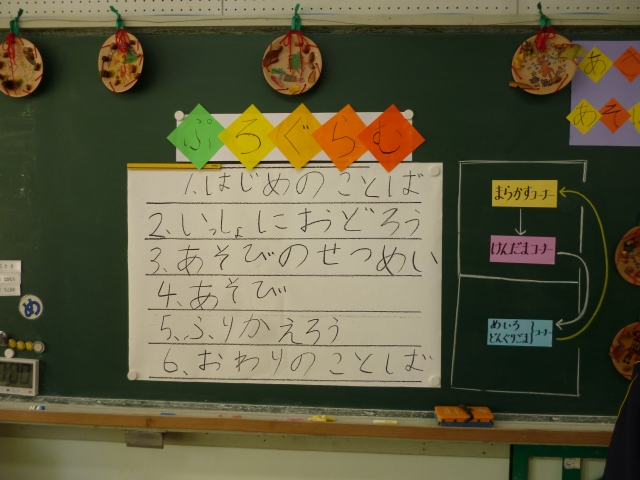 ぷろぐらむ
1.はじめのことば
2、いっしょにおどろう
3、あそびのせつめい
4、あそび
5、ふりかえろう
6、おわりのことしば
まらかすコーナー
けんだまコーナー
めいろ
どんぐりごま
コーナー
あ
あそ
め